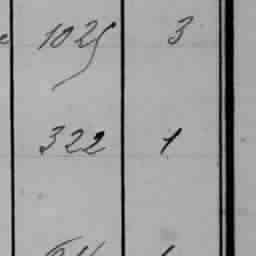 1025 3
322 1